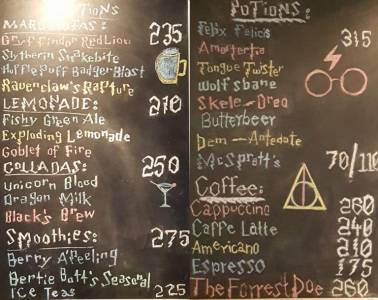 POTIONS
MARGARITAS: 235
Gryffindor Red Lion
Slytherin Snakebite
Hufflepuff Badger Blast
Ravenclaw's Rapture
LEMONADE: 210
Fishy Green Ale
Exploding Lemonade
Goblet of Fire
COLLADAS: 250
Unicorn Blood
Dragon Milk
Black's Brew
Smoothies: 275
Berry Apeeling
Bertie Bott's Seasonal
ICE Teas 225
POTIONS:
Felix Felicis 315
Amortentia
Tongue Twister
Wolfsbane
Skele-Dro
Butterbeer
Dem-Antedote
McSpratt's 70/110
Coffee:
Cappuccino 260
Caffe Latte 240
Americano 210
Espresso 175
The Forrest Doe 260